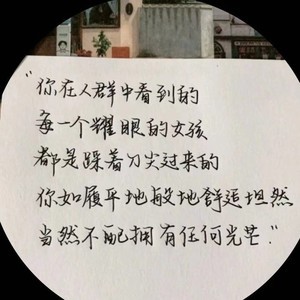 "你在人群中看到的
每一个耀眼的女孩
都是踩着刀尖过来的
你如履平地般地舒适坦然
当然不配拥有任何光芒."